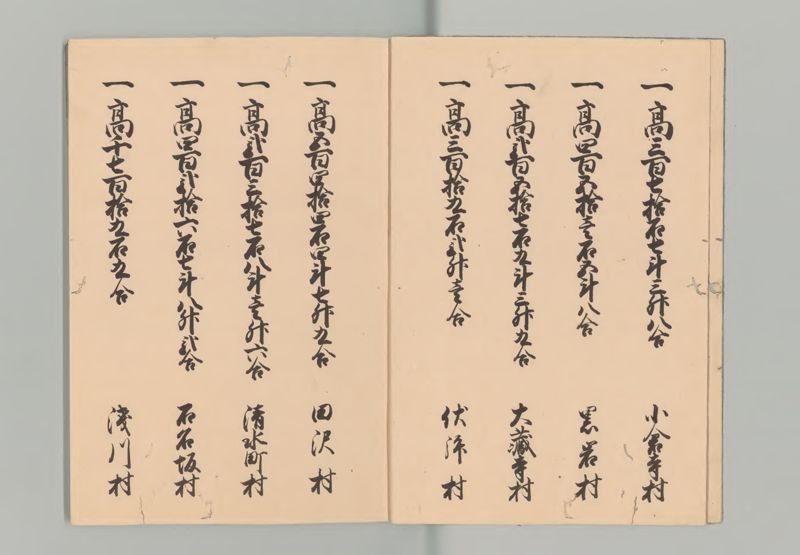 一高三百七拾石七斗三升八合 小倉寺村
一高四百五拾壱石五斗八合 黒岩村
一高弐百五拾七石五斗三升九合 大蔵寺村
一高三百拾九石弐升壱合 伏拝村
一高五百四拾四石四斗七升九合 田沢村
一高弐百三拾七石八斗壱升六合 清水町村
一高四百弐拾六石七斗八升弐合 石名坂村
一高千七百拾九石九合 浅川村